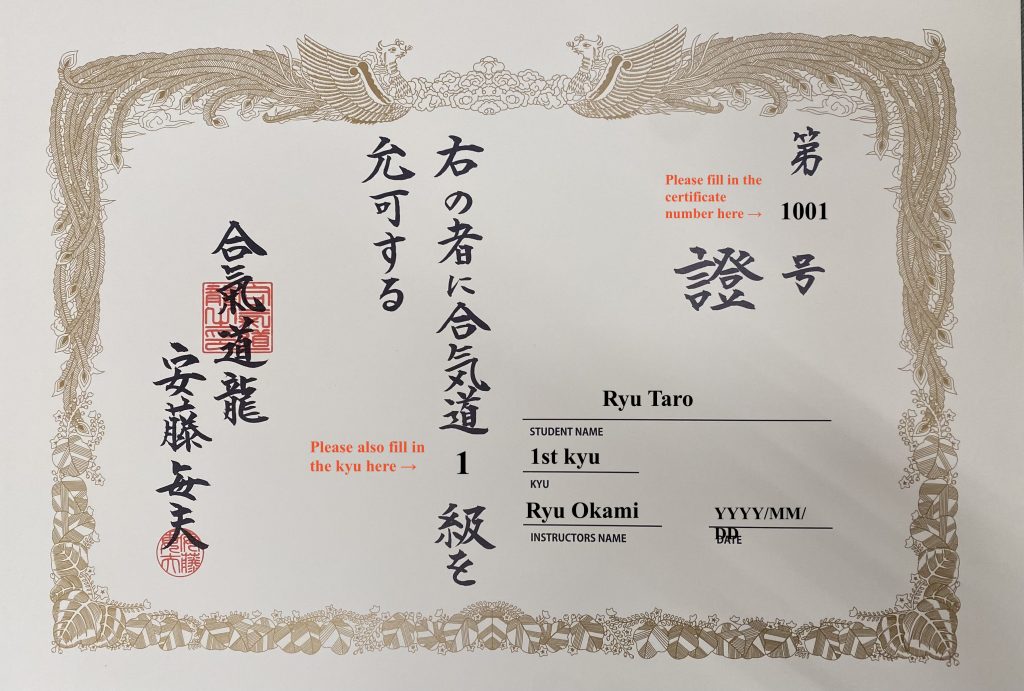 第 1001 号
Please fill in the
certificate
number here →
證
Ryu Taro
STUDENT NAME
1st kyu
KYU
Ryu Okami
INSTRUCTORS NAME
YYYY/MM/
DD
DATE
右の者に合気道 1 級を
Please also fill in
the kyu here →
允可する
合氣道龍
安藤毎夫